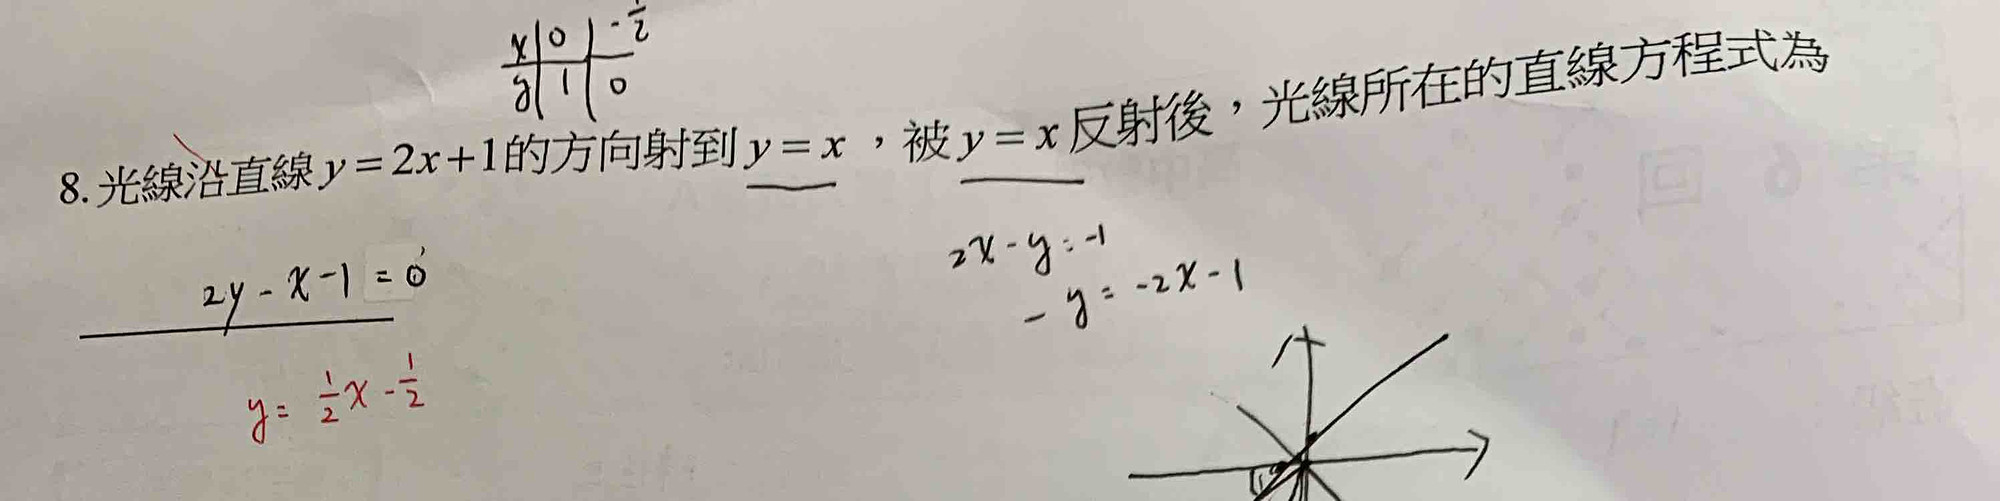 x 0 -1/2
y 1 0
8. 光線沿直線 y = 2x+1 的方向射到 y = x ，被 y = x 反射後，光線所在的直線方程式為
2x - y = -1
- y = -2x - 1
2y - x - 1 = 0
y = 1/2 x - 1/2